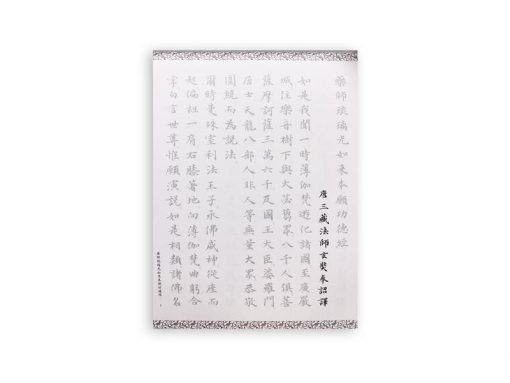 藥師琉璃光如來本願功德經
唐三藏法師玄奘奉詔譯
如是我聞一時薄伽梵遊化諸國至廣嚴
城住樂音樹下與大苾芻眾八千人俱菩
薩摩訶薩三萬六千及國王大臣婆羅門
居士天龍八部人非人等無量大眾恭敬
圍繞而為說法
爾時曼殊室利法王子承佛威神從座而
起偏袒一肩右膝著地向薄伽梵曲躬合
掌白言世尊惟願演說如是相類諸佛名